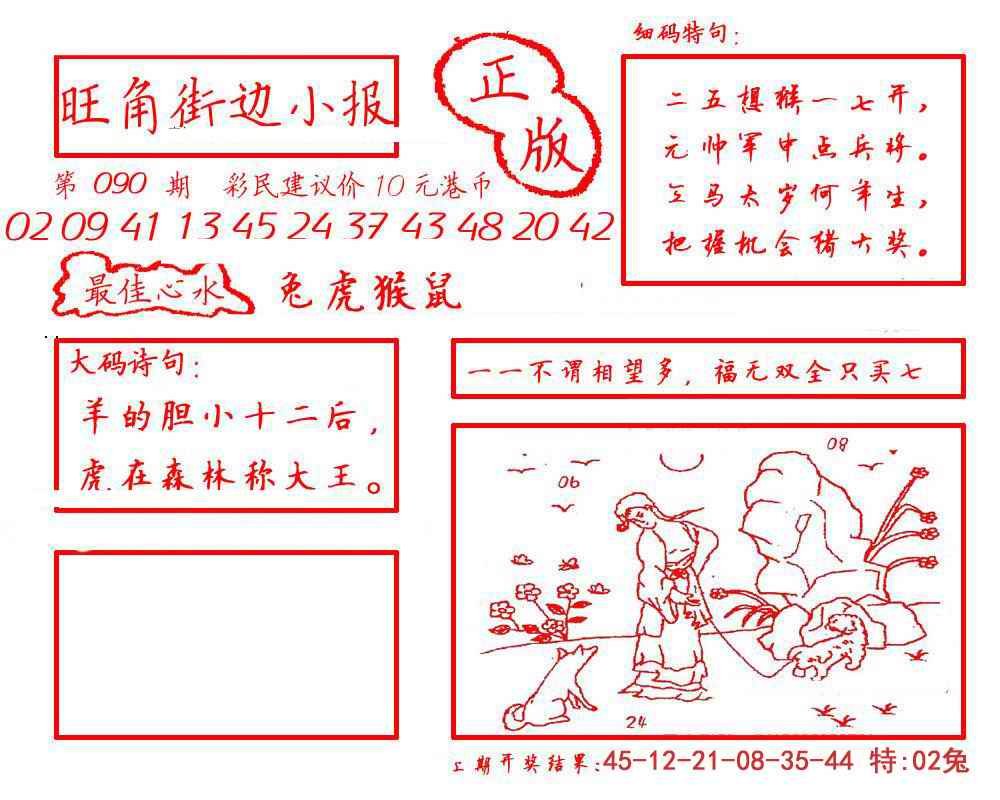 细码特句：
旺角街边小报
正版
二五想猴一七开，
元帅军中点兵将。
马太岁何年生，
把握机会猪大奖。
第 090 期 彩民建议价10元港币
02 09 41 13 45 24 37 43 48 20 42
最佳心水 兔虎猴鼠
大码诗句：
羊的胆小十二后，
虎在森林称大王。
一一不谓相望多，福无双全只买七
08
06
24
期开奖结果：45-12-21-08-35-44 特:02兔